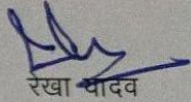 रेखा यादव